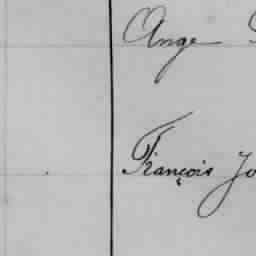 Ange
François Jo